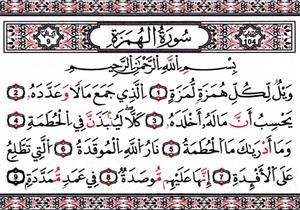 سُورَةُ الْهُمَزَةِ
بِسْمِ اللَّهِ الرَّحْمَٰنِ الرَّحِيمِ
وَيْلٌ لِكُلِّ هُمَزَةٍ لُمَزَةٍ 1 الَّذِي جَمَعَ مَالًا وَعَدَّدَهُ 2
يَحْسَبُ أَنَّ مَالَهُ أَخْلَدَهُ 3 كَلَّا لَيُنْبَذَنَّ فِي الْحُطَمَةِ 4
وَمَا أَدْرَيكَ مَا الْحُطَمَةُ 5 نَارُ اللَّهِ الْمُوقَدَةُ 6 الَّتِي تَطَّلِعُ
عَلَى الْأَفْئِدَةِ 7 إِنَّهَا عَلَيْهِمْ مُوصَدَةٌ 8 فِي عَمَدٍ مُمَدَّدَةٍ 9